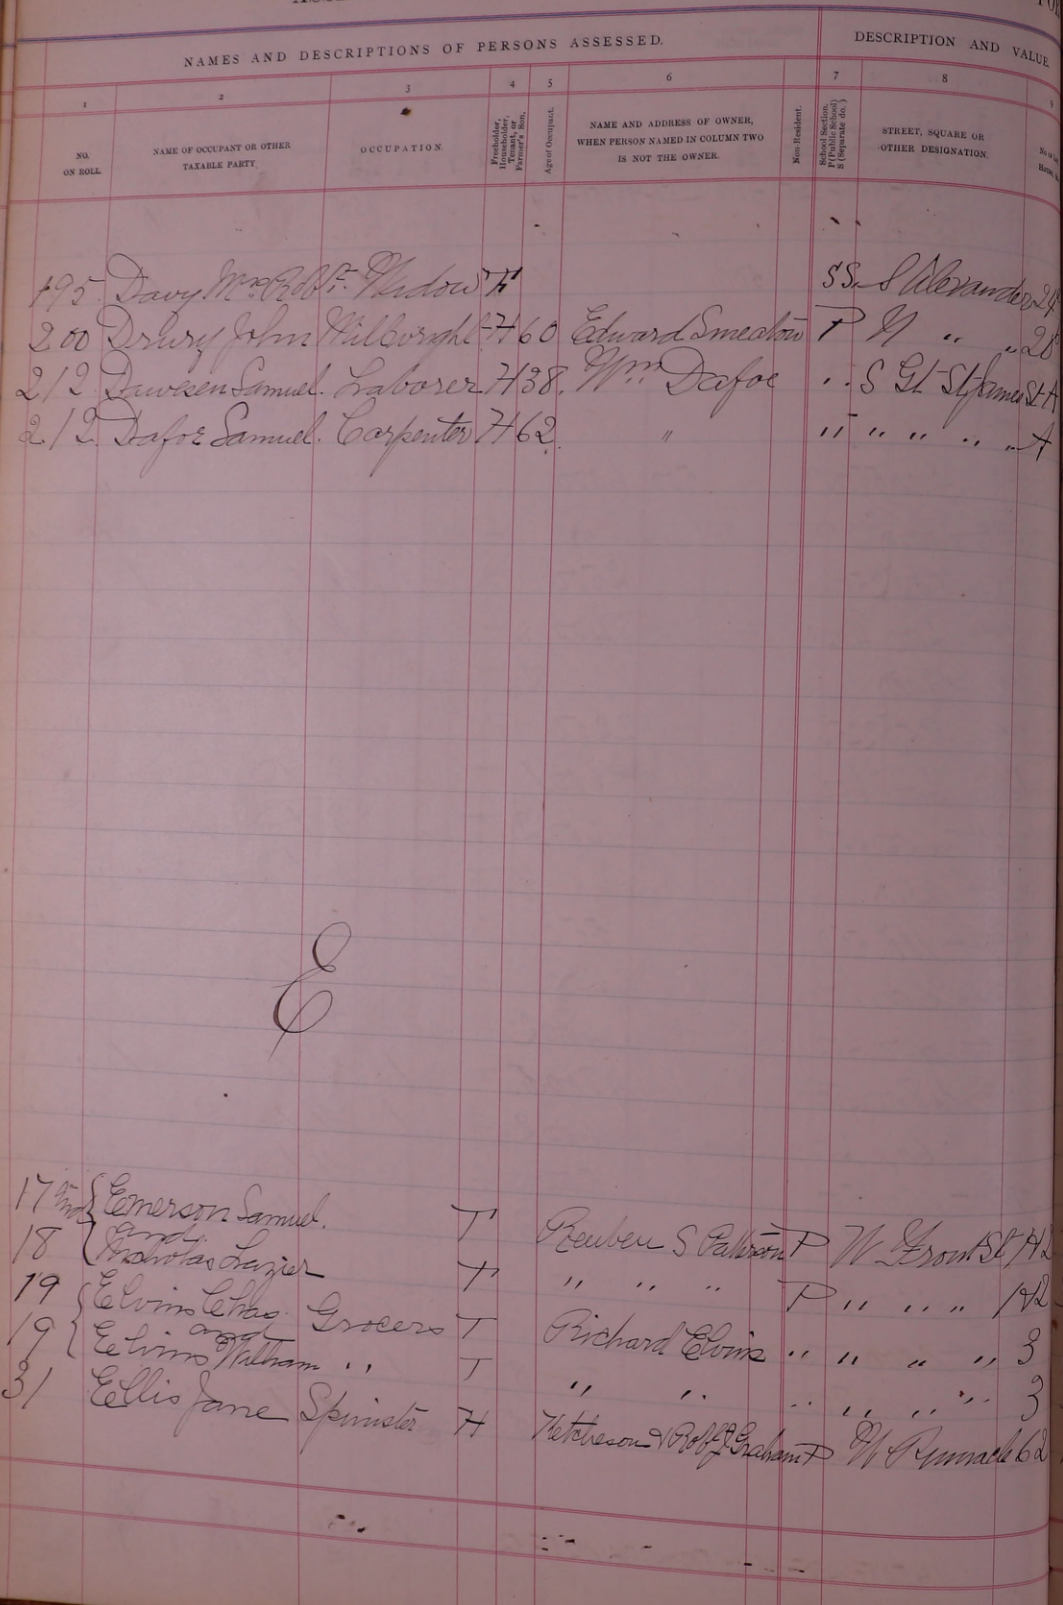 NAMES AND DESCRIPTIONS OF PERSONS ASSESSED.
DESCRIPTION AND VALUE
1 2 3 4 5 6 7 8
NO. ON ROLL.
NAME OF OCCUPANT OR OTHER TAXABLE PARTY.
OCCUPATION.
Freeholder, Householder, Tenant, or Farmer's Son.
Age of Occupant.
NAME AND ADDRESS OF OWNER, WHEN PERSON NAMED IN COLUMN TWO IS NOT THE OWNER.
Non-Resident.
School Section. P (Public School) S (Separate do.)
STREET, SQUARE OR OTHER DESIGNATION.
195 Davy Mrs Robt. Widow F SS. S Alexander 24
200 Drury John Millwright H 60 Edward Smeaton P N " "
212 Samuel. Laborer H 38. Wm Dafoe " S Gt St James St A
212 Dafoe Samuel. Carpenter H 62 " " " " " " A
E
17 and { Emerson Samuel. T Reuben S Patterson P W Front St
and
18 Nicholas Lazier T " " " P " " "
19 { Elvins Chas. Grocers T Richard Elvins " " " " 3
and
19 { Elvins William " T " " " " " " 3
31 Ellis Jane Spinster H Ketcheson & Robt J Graham P W Pinnacle 62